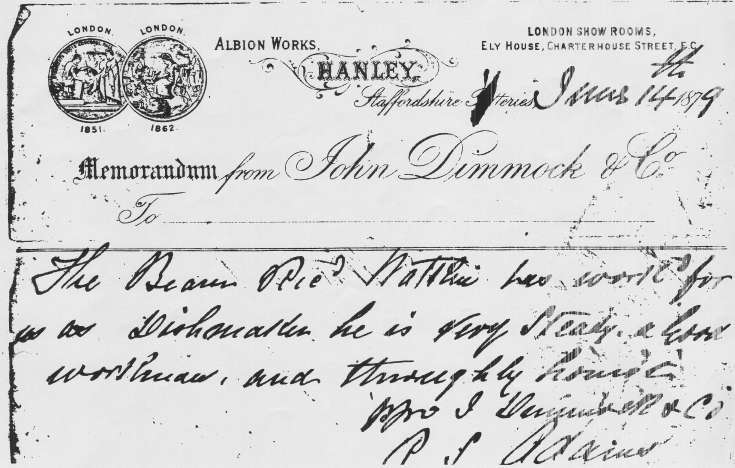 LONDON. LONDON.
1851. 1862.
ALBION WORKS,
HANLEY,
Staffordshire Potteries,
LONDON SHOW ROOMS,
ELY HOUSE, CHARTERHOUSE STREET, E.C.
June 14th 1879
Memorandum from John Dimmock & Co.
To
The Bearer Ricd has workd for
us as Dishmaker. he is very Steady. a Good
workman. and throughly honest
ppro J Dimmock & Co
P S Adams